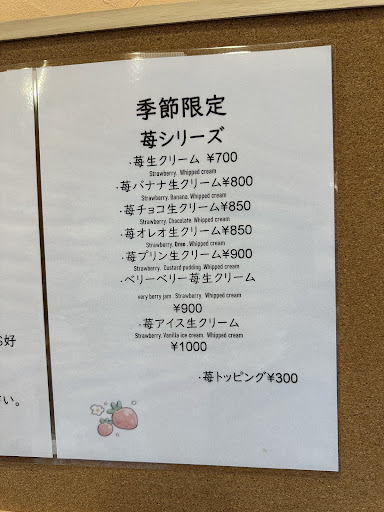 季節限定
苺シリーズ
・苺生クリーム ¥700
Strawberry. Whipped cream
・苺バナナ生クリーム¥800
Strawberry. Banana. Whipped cream
・苺チョコ生クリーム¥850
Strawberry. Chocolate. Whipped cream
・苺オレオ生クリーム¥850
Strawberry. Oreo . Whipped cream
・苺プリン生クリーム¥900
Strawberry. Custard pudding. Whipped cream
・ベリーベリー苺生クリーム
very berry jam . Strawberry. Whipped cream
¥900
・苺アイス生クリーム
Strawberry. Vanilla ice cream . Whipped cream
¥1000
・苺トッピング¥300
好
い。